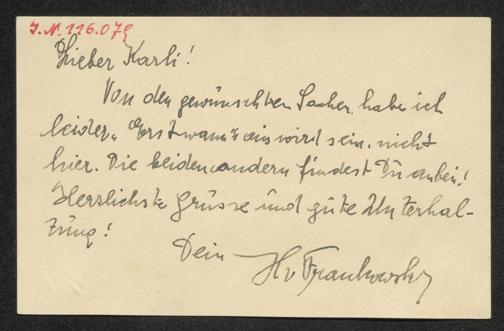 J.N. 116.079
Lieber Karli!
Von den gewünschten Sachen habe ich
leider „Erst wann's aus wird sein" nicht
hier. Die beiden andern findest Du anbei!
Herzlichste Grüsse und gute Unterhal-
tung!
Dein Hv Frankowski